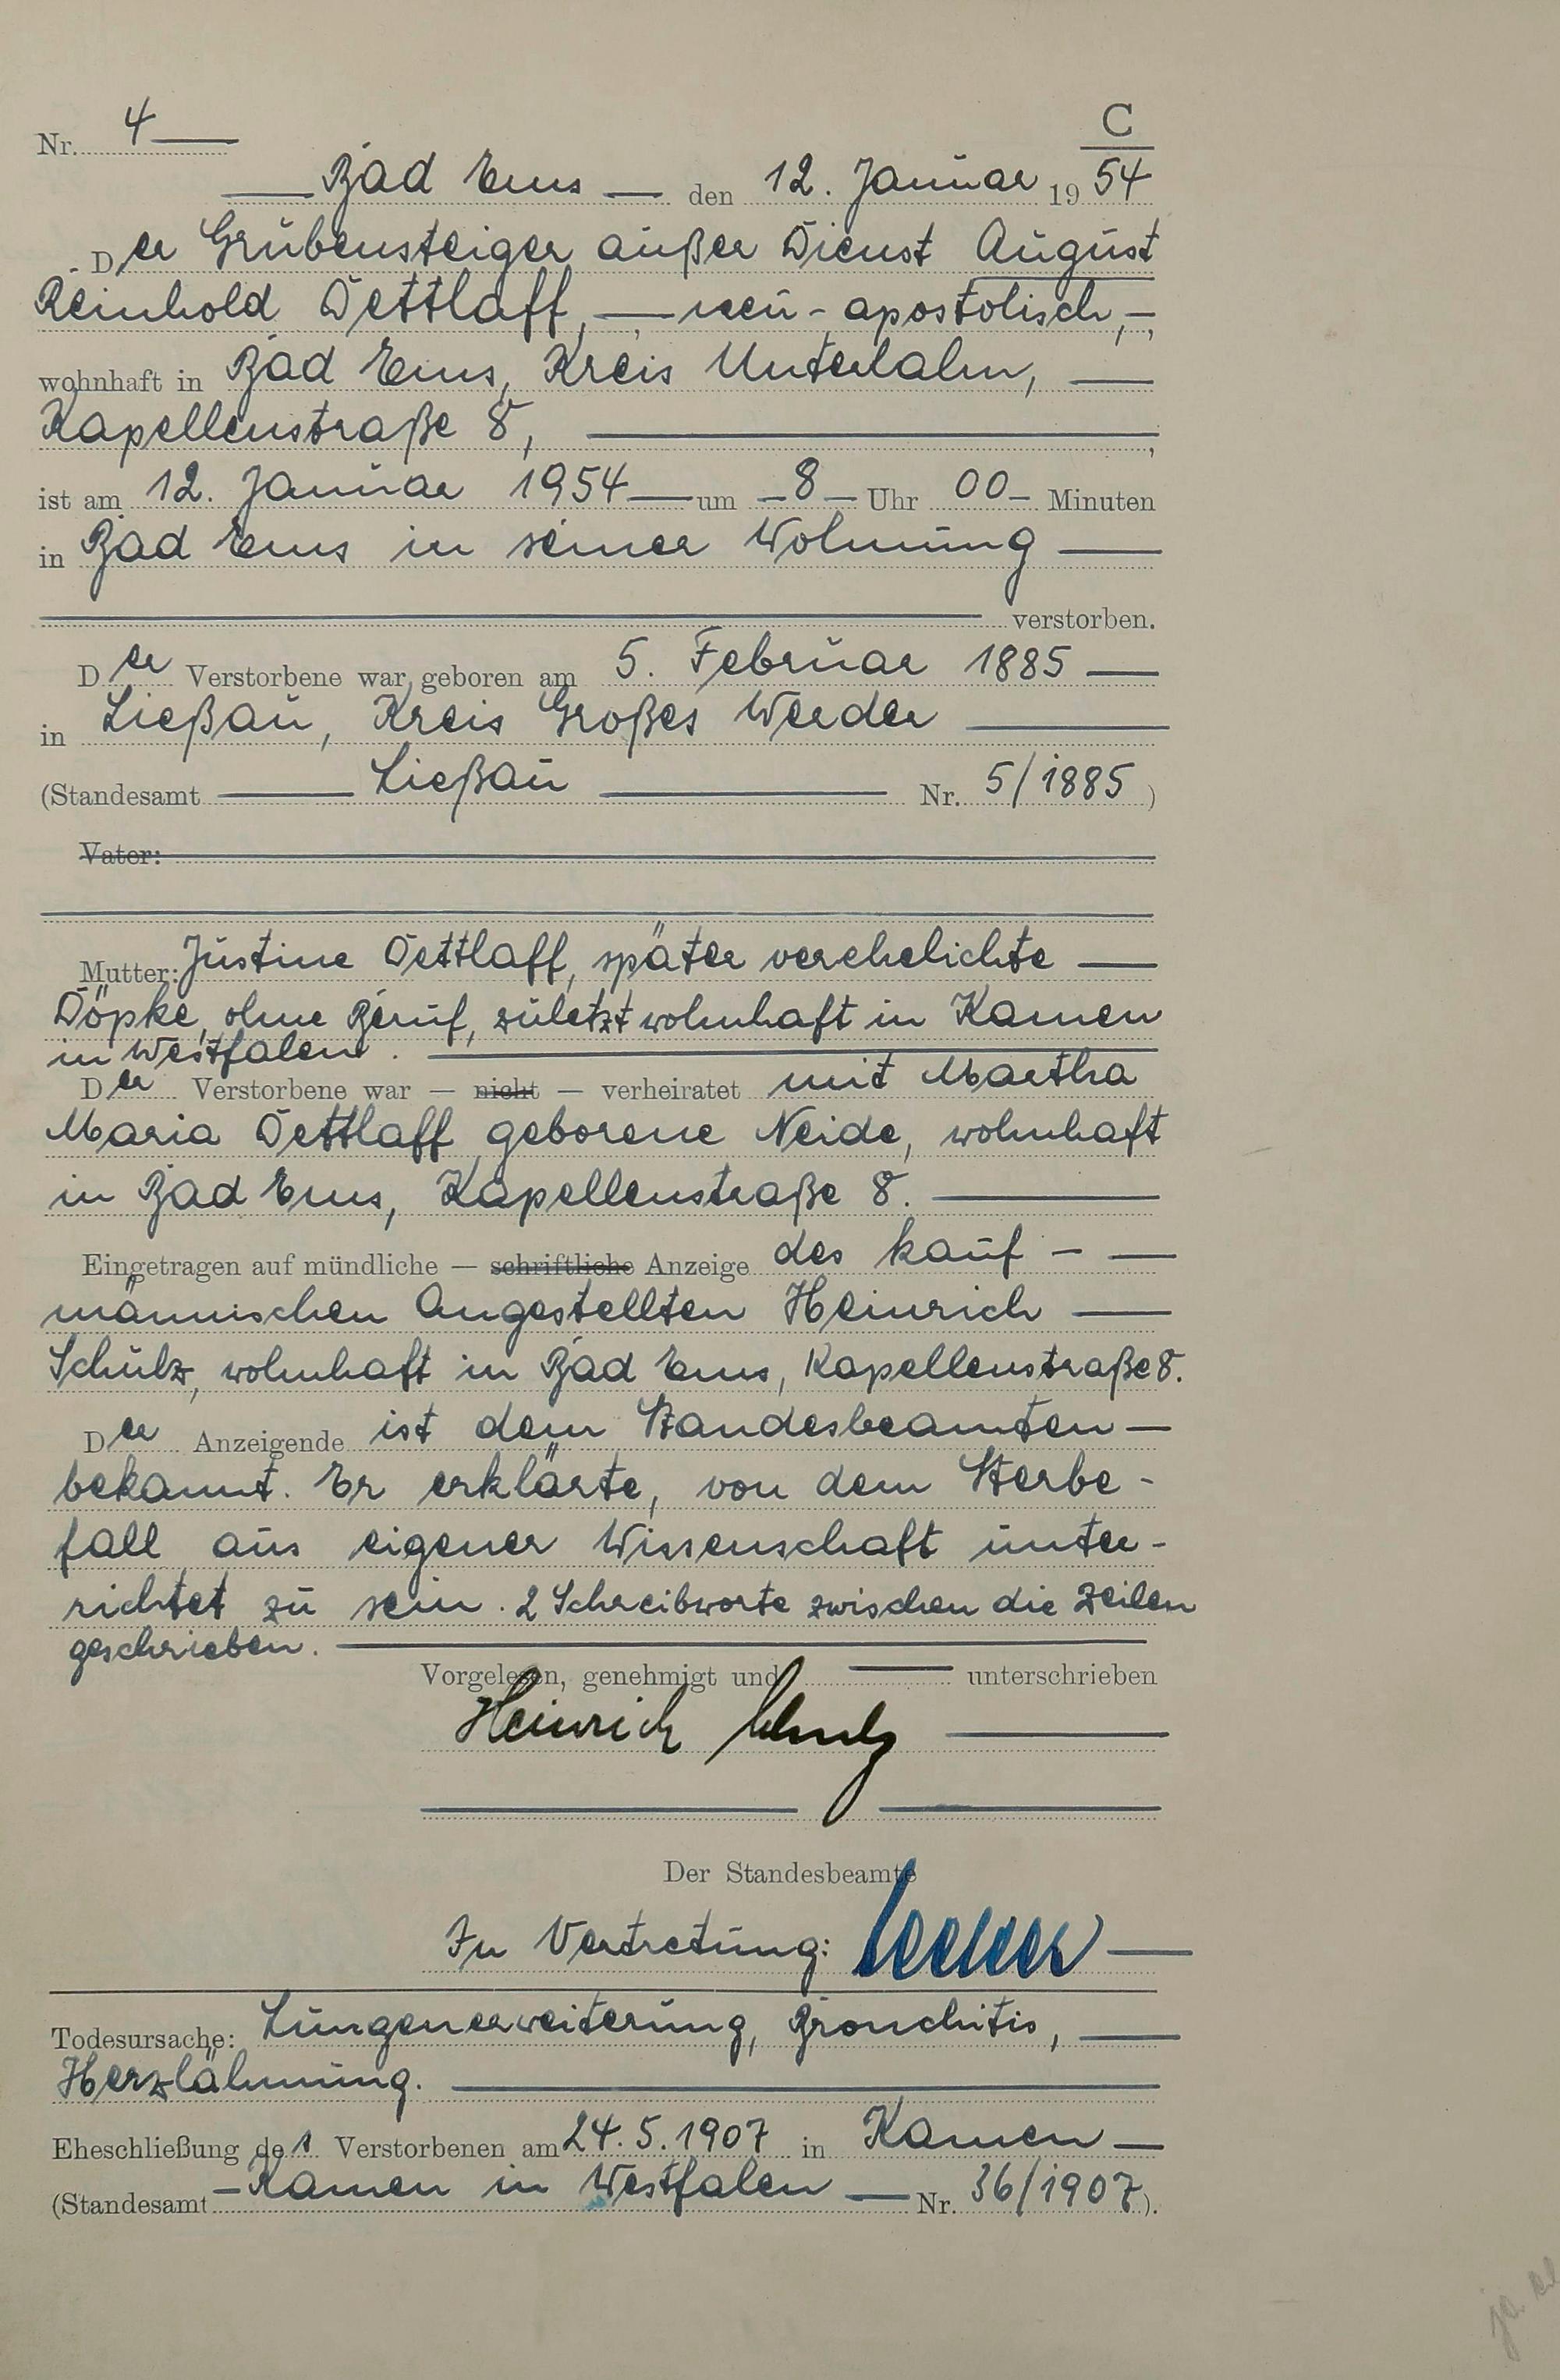 C
Nr. 4
Bad Ems den 12. Januar 1954
Der Grubensteiger außer Dienst August
Reinhold Dettlaff, neu-apostolisch,
wohnhaft in Bad Ems, Kreis Unterlahn,
Kapellenstraße 8,
ist am 12. Januar 1954 um 8 Uhr 00 Minuten
in Bad Ems in seiner Wohnung
verstorben.
Der Verstorbene war geboren am 5. Februar 1885
in Ließau, Kreis Großes Werder
(Standesamt Ließau Nr. 5/1885)
Vater:
Mutter: Justine Dettlaff, später verehelichte
Döpke, ohne Beruf, zuletzt wohnhaft in Kamen
in Westfalen.
Der Verstorbene war — nicht — verheiratet mit Martha
Maria Dettlaff geborene Neide, wohnhaft
in Bad Ems, Kapellenstraße 8.
Eingetragen auf mündliche — schriftliche Anzeige des kauf-
männischen Angestellten Heinrich
Schulz, wohnhaft in Bad Ems, Kapellenstraße 8.
Der Anzeigende ist dem Standesbeamten
bekannt. Er erklärte, von dem Sterbe-
fall aus eigener Wissenschaft unter-
richtet zu sein. 2 Schreibworte zwischen die Zeilen
geschrieben.
Vorgelesen, genehmigt und unterschrieben
Heinrich Schulz
Der Standesbeamte
In Vertretung:
Todesursache: Lungenerweiterung, Bronchitis,
Herzlähmung.
Eheschließung des Verstorbenen am 24.5.1907 in Kamen
(Standesamt Kamen in Westfalen Nr. 36/1907).